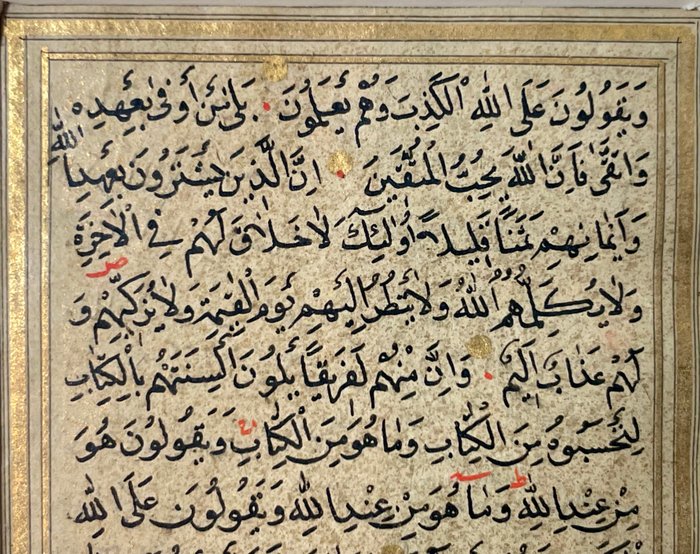 وَيَقُولُونَ عَلَى اللّٰهِ الْكَذِبَ وَهُمْ يَعْلَمُونَ بَلٰى مَنْ أَوْفٰى بِعَهْدِهِ
وَاتَّقٰى فَاِنَّ اللّٰهَ يُحِبُّ الْمُتَّقِينَ اِنَّ الَّذِينَ يَشْتَرُونَ بِعَهْدِ اللّٰهِ
وَاَيْمَانِهِمْ ثَمَنًا قَلِيلًا اُولٰئِكَ لَا خَلَاقَ لَهُمْ فِي الْاٰخِرَةِ
وَلَا يُكَلِّمُهُمُ اللّٰهُ وَلَا يَنْظُرُ اِلَيْهِمْ يَوْمَ الْقِيٰمَةِ وَلَا يُزَكِّيهِمْ وَ
لَهُمْ عَذَابٌ اَلِيمٌ وَاِنَّ مِنْهُمْ لَفَرِيقًا يَلْوُنَ اَلْسِنَتَهُمْ بِالْكِتَابِ
لِتَحْسَبُوهُ مِنَ الْكِتَابِ وَمَا هُوَ مِنَ الْكِتَابِ وَيَقُولُونَ هُوَ
مِنْ عِنْدِ اللّٰهِ وَمَا هُوَ مِنْ عِنْدِ اللّٰهِ وَيَقُولُونَ عَلَى اللّٰهِ